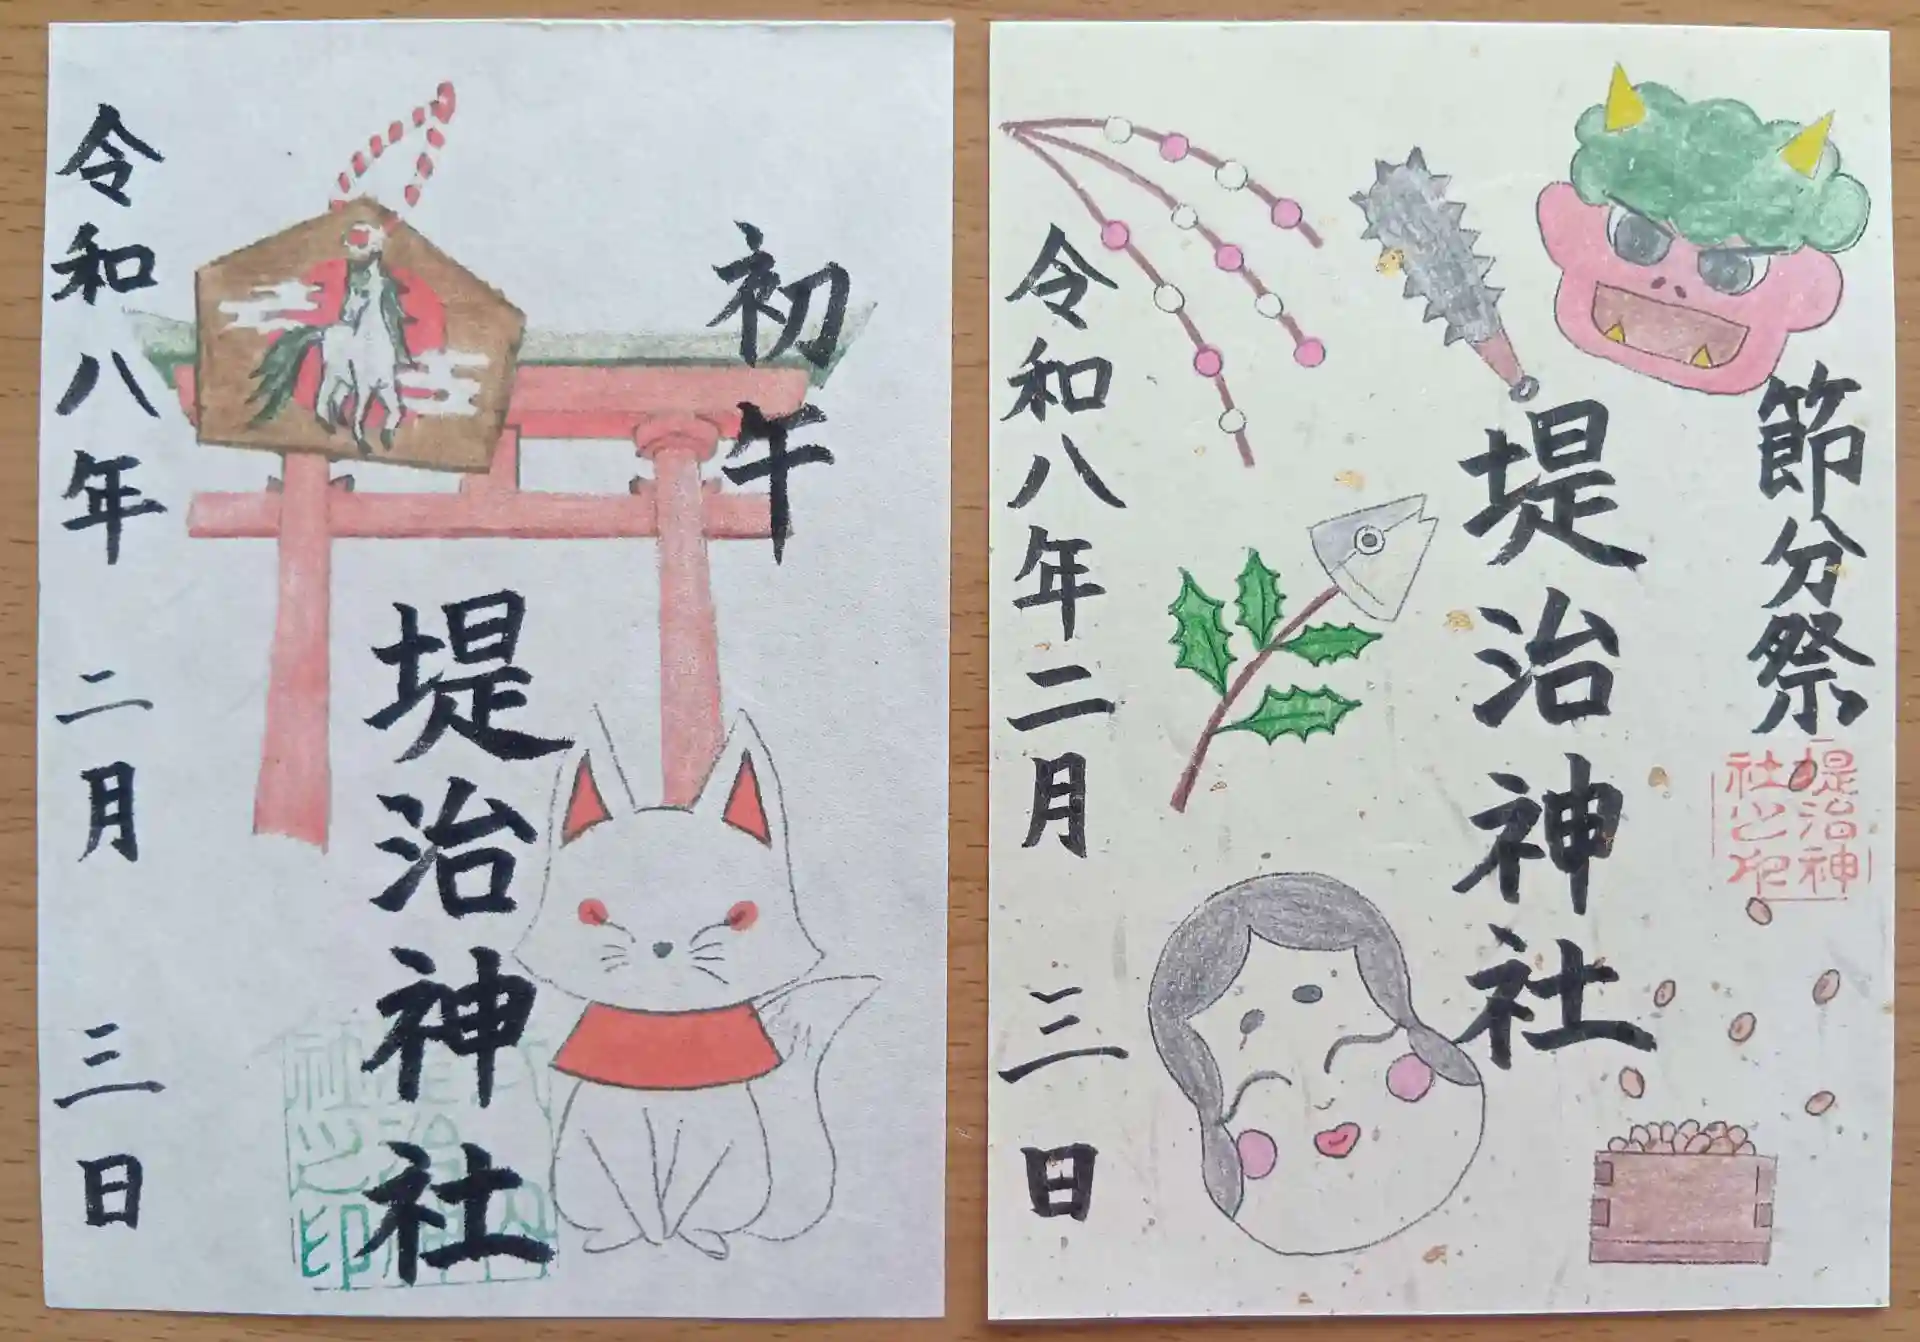 初午
堤治神社
令和八年 二月 三日
節分祭
堤治神社
堤治神
社之印
令和八年二月 三日